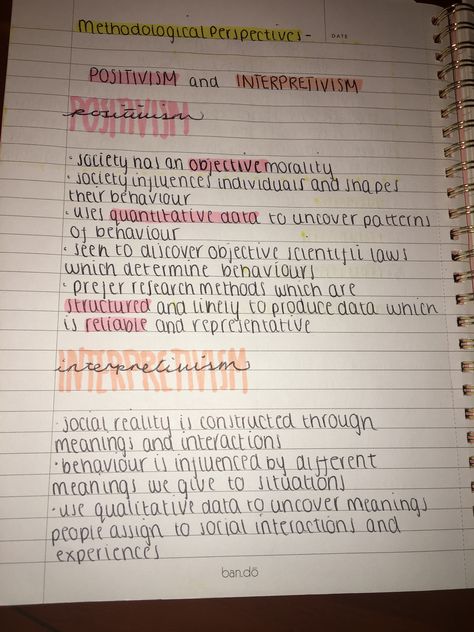 Methodological Perspectives-
DATE
POSITIVISM and INTERPRETIVISM
POSITIVISM
positivism
· society has an objective morality
· society influences individuals and shapes
their behaviour
· uses quantitative data to uncover patterns
of behaviour
· seen to discover objective scientific laws
which determine behaviours
· prefer research methods which are
structured and likely to produce data which
is reliable and representative
INTERPRETIVISM
interpretivism
· social reality is constructed through
meanings and interactions
· behaviour is influenced by different
meanings we give to situations
· use qualitative data to uncover meanings
people assign to social interactions and
experiences
ban.dō